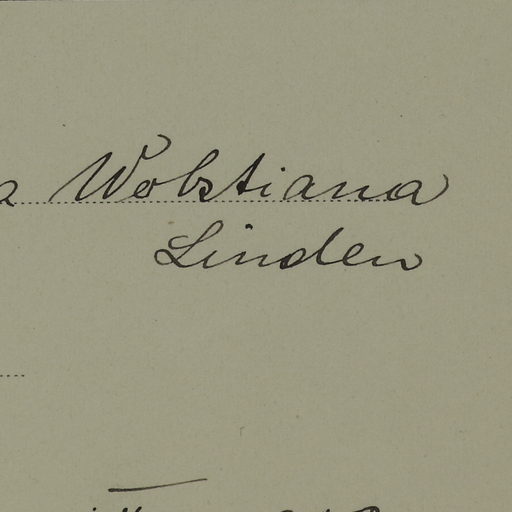 a Wolstiana
Linden